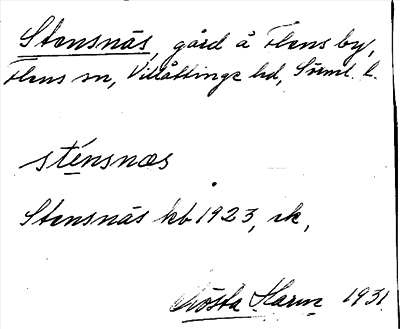 Stensnäs, gård å Flens by,
Flens sn, Villåttinge hd, Söml. l.
sténsnæs
Stensnäs kb 1923, rk,
Gösta Karm 1931